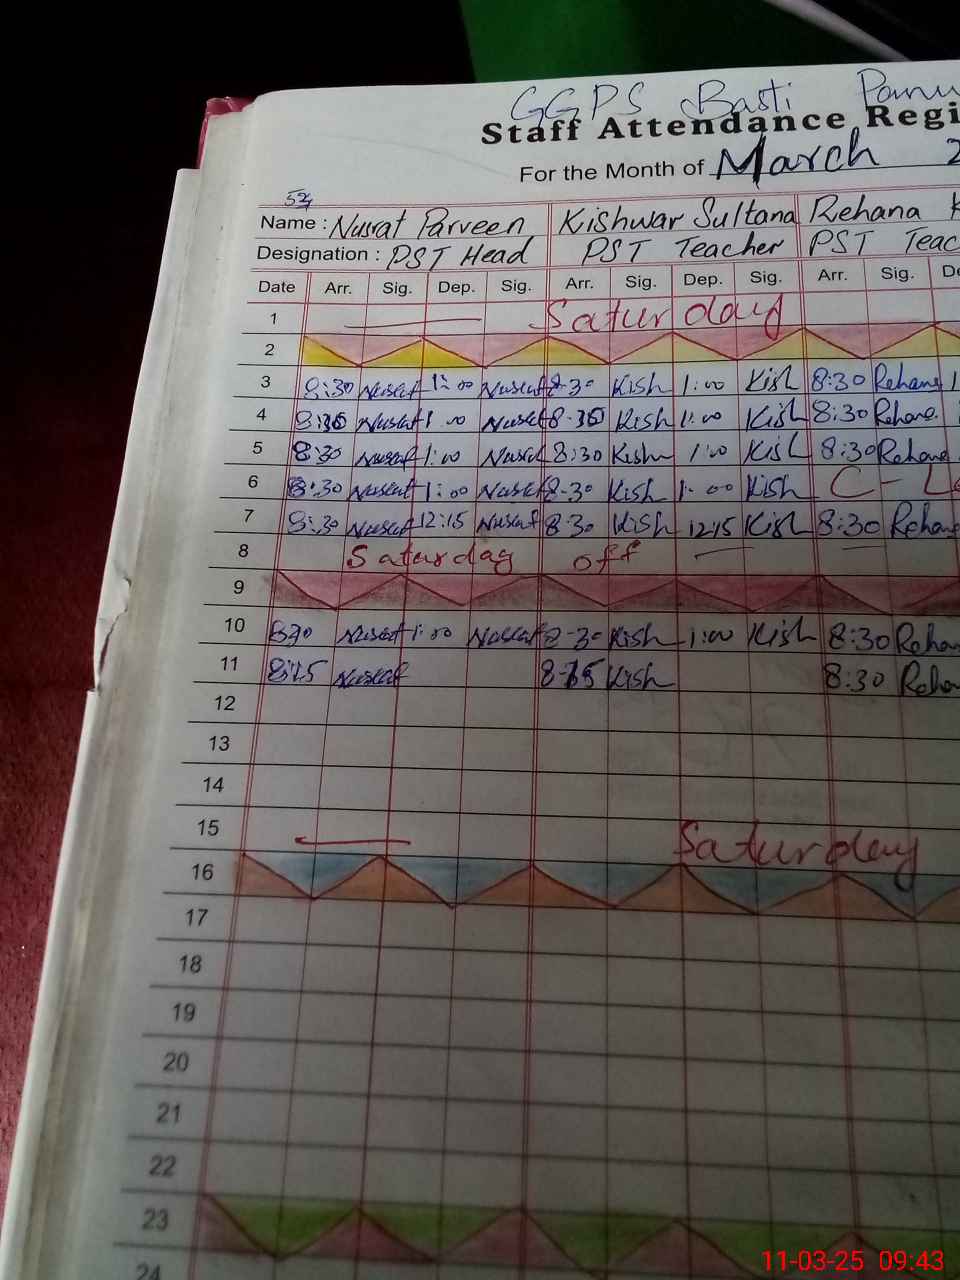 GGPS Basti
Staff Attendance Regi
For the Month of March 2
Name : Nusrat Parveen Kishwar Sultana Rehana K
Designation : PST Head PST Teacher PST Teac
Date Arr. Sig. Dep. Sig. Arr. Sig. Dep. Sig. Arr. Sig. De
1 Saturday
2
3 8:30 Nusrat 1:00 Nusrat 8-30 Kish 1:00 Kish 8:30 Rehana 1
4 8:30 Nusrat 1:00 Nusrat 8-30 Kish 1:00 Kish 8:30 Rehana
5 8:30 Nusrat 1:00 Nusrat 8:30 Kish 1:00 Kish 8:30 Rehana
6 8:30 Nusrat 1:00 Nusrat 8-30 Kish 1:00 Kish C-Le
7 8:30 Nusrat 12:15 Nusrat 8-30 Kish 12:15 Kish 8:30 Rehana
8 Saturday off
9
10 830 Nusrat 1:00 Nusrat 8-30 Kish 1:00 Kish 8:30 Rehan
11 8:15 Nusrat 8-15 Kish 8:30 Reha
12
13
14
15 Saturday
16
17
18
19
20
21
22
23
24
11-03-25 09:43